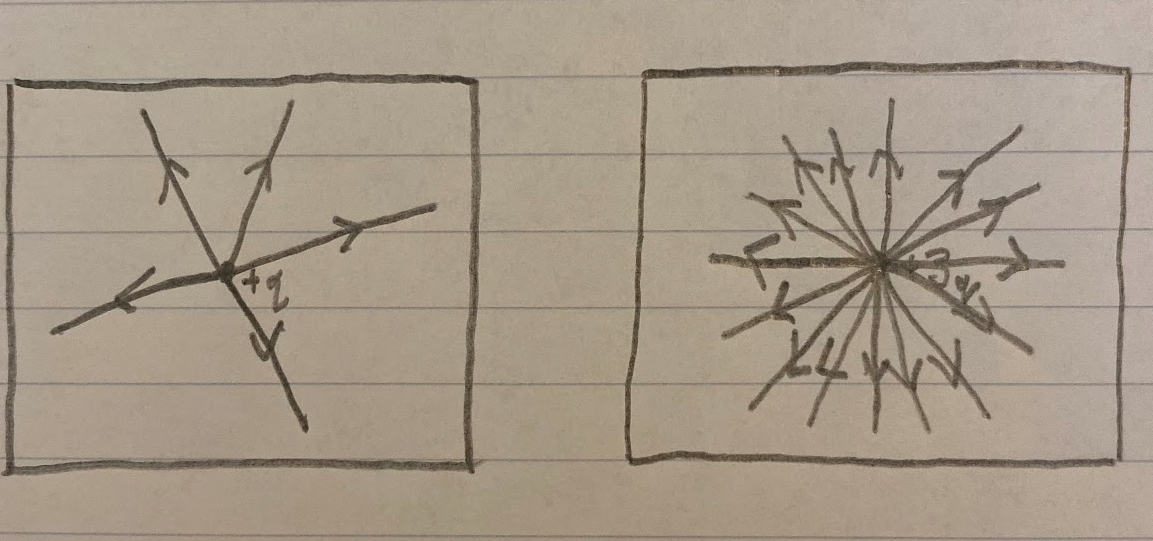 +q
+3q